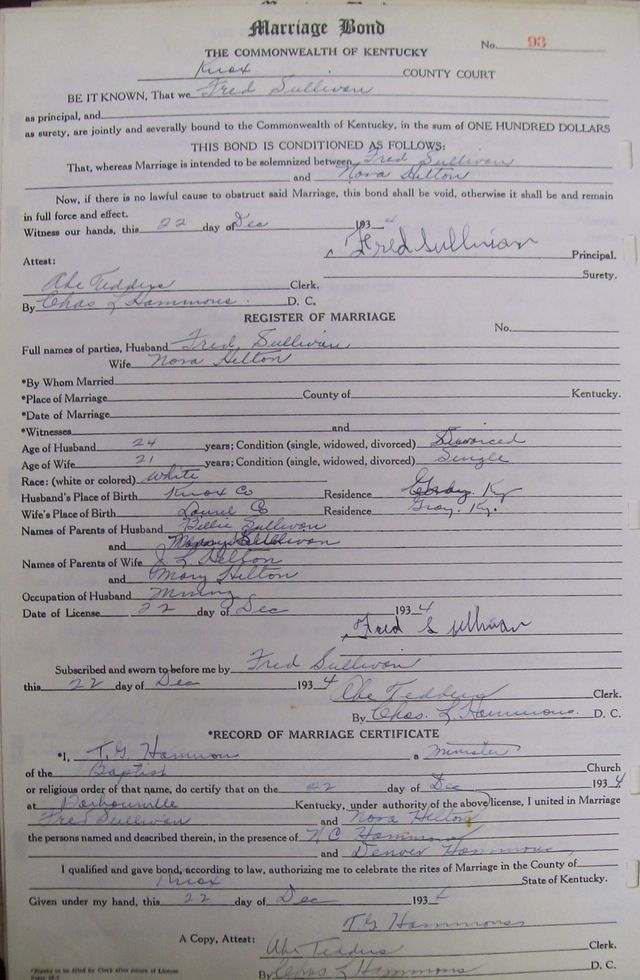 Marriage Bond
THE COMMONWEALTH OF KENTUCKY
No. 93
Knox COUNTY COURT
BE IT KNOWN, That we Fred Sullivan
as principal, and
as surety, are jointly and severally bound to the Commonwealth of Kentucky, in the sum of ONE HUNDRED DOLLARS
THIS BOND IS CONDITIONED AS FOLLOWS:
That, whereas Marriage is intended to be solemnized between Fred Sullivan
and Nora Hilton
Now, if there is no lawful cause to obstruct said Marriage, this bond shall be void, otherwise it shall be and remain
in full force and effect.
Witness our hands, this 22 day of Dec 1934
Fred Sullivian Principal.
Attest:
Surety.
Abe Tedders Clerk.
By Chas L Hammons. D. C.
REGISTER OF MARRIAGE
No.
Full names of parties, Husband Fred Sullivan
Wife Nora Hilton
*By Whom Married
*Place of Marriage County of Kentucky.
*Date of Marriage
*Witnesses and
Age of Husband 24 years; Condition (single, widowed, divorced) Divorced
Age of Wife 21 years; Condition (single, widowed, divorced) Single
Race: (white or colored) White
Husband's Place of Birth Knox Co Residence Gray. Ky
Wife's Place of Birth Laurel Co Residence Gray. Ky.
Names of Parents of Husband Billie Sullivan
and Sullivan
Names of Parents of Wife J L Hilton
and Mary Hilton
Occupation of Husband Mining
Date of License 22 day of Dec 1934
Fred Sullivan
Subscribed and sworn to before me by Fred Sullivan
this 22 day of Dec 1934
Abe Tedders Clerk.
By Chas. L Hammons. D. C.
*RECORD OF MARRIAGE CERTIFICATE
*I, T. G. Hammons a Minister
of the Baptist Church
or religious order of that name, do certify that on the 22 day of Dec 1934
at Barbourville Kentucky, under authority of the above license, I united in Marriage
Fred Sullivan and Nora Hilton
the persons named and described therein, in the presence of N C Hammons
and Denver Hammons,
I qualified and gave bond, according to law, authorizing me to celebrate the rites of Marriage in the County of
Knox State of Kentucky.
Given under my hand, this 22 day of Dec 1934
T G Hammons
A Copy, Attest: Abe Tedders Clerk.
*Blanks to be filled by Clerk after return of License
By Chas L Hammons D. C.